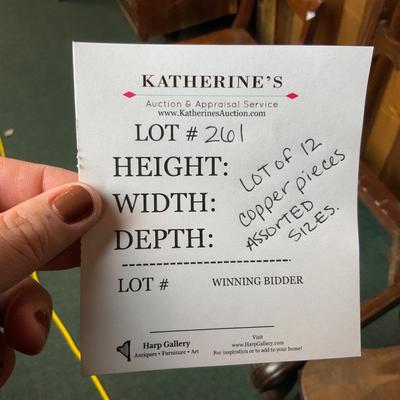 KATHERINE'S
Auction & Appraisal Service
www.KatherinesAuction.com
LOT # 261
HEIGHT:
WIDTH:
DEPTH:
LOT OF 12
copper pieces
ASSORTED
SIZES.
LOT #
WINNING BIDDER
Harp Gallery
Antiques • Furniture • Art
Visit
www.HarpGallery.com
For inspiration or to add to your home!